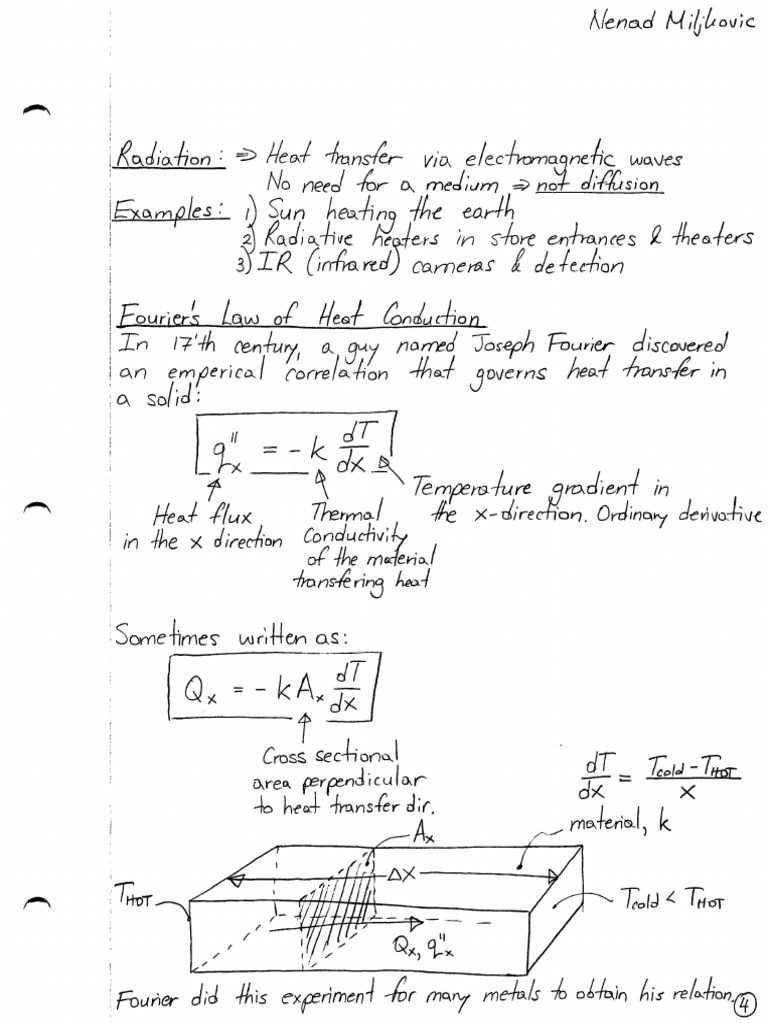 Nenad Miljkovic
Radiation: ⇒ Heat transfer via electromagnetic waves
No need for a medium ⇒ not diffusion
Examples: 1) Sun heating the earth
2) Radiative heaters in store entrances & theaters
3) IR (infrared) cameras & detection
Fourier's Law of Heat Conduction
In 17'th century, a guy named Joseph Fourier discovered
an emperical correlation that governs heat transfer in
a solid:
q''ₓ = -k dT/dx
Temperature gradient in
the x-direction. Ordinary derivative
Heat flux
in the x direction
Thermal
Conductivity
of the material
transfering heat
Sometimes written as:
Qₓ = -kAₓ dT/dx
Cross sectional
area perpendicular
to heat transfer dir.
dT/dx = (Tcold - THOT)/x
material, k
Aₓ
Δx
THOT
Tcold < THOT
Qₓ, q''ₓ
Fourier did this experiment for many metals to obtain his relation.
4